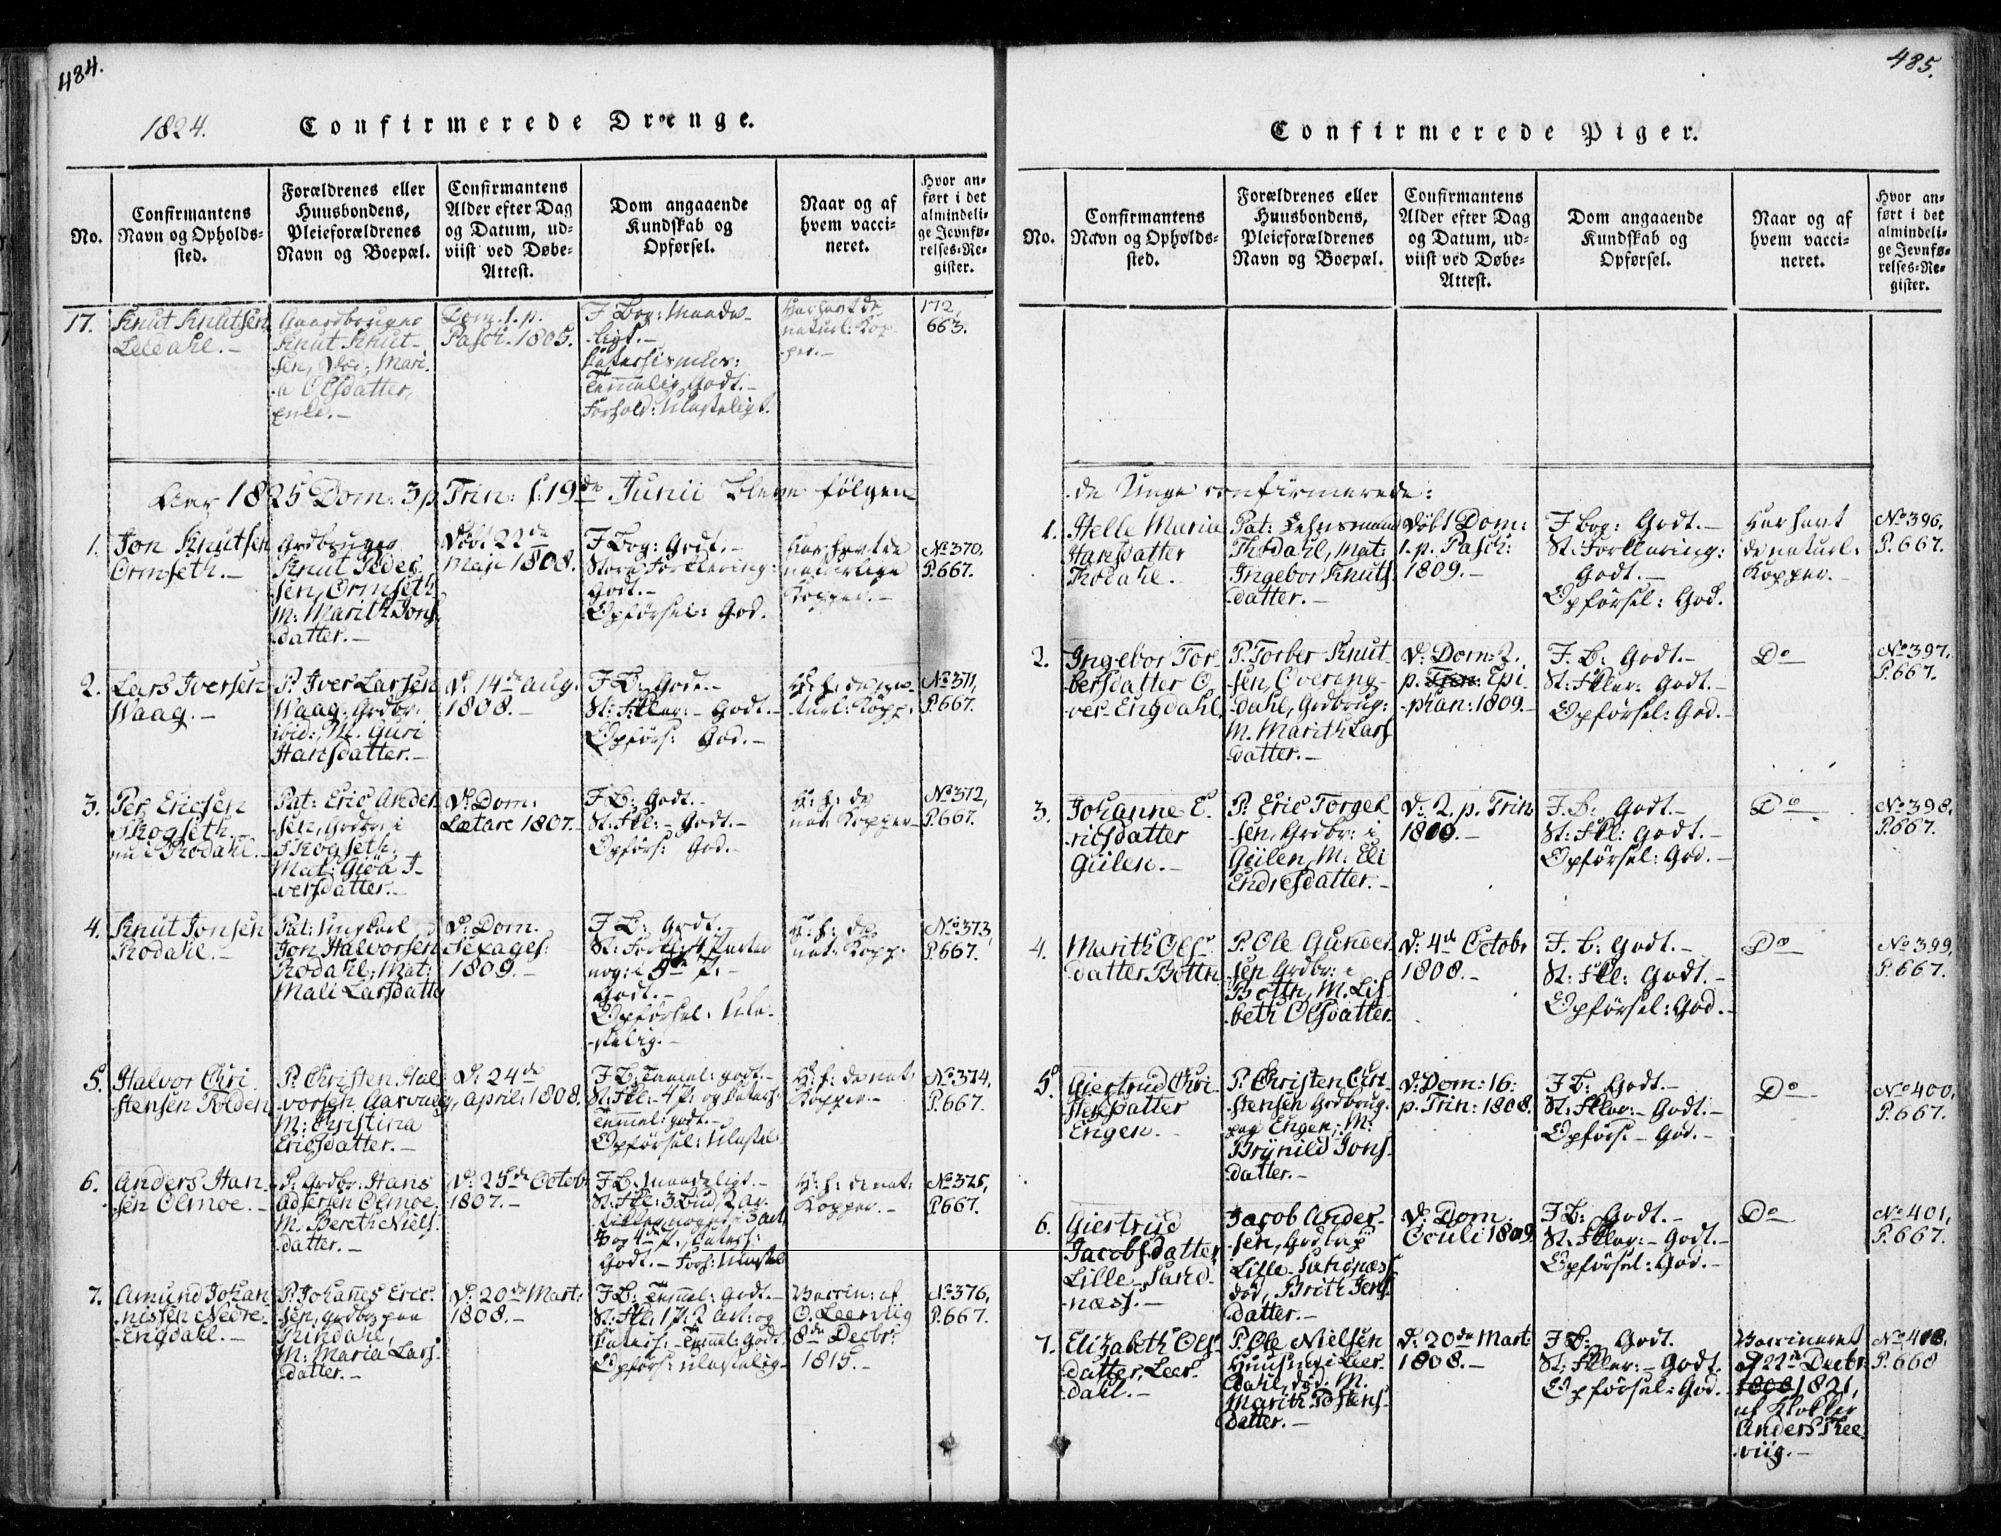 484.
1824.
Confirmerede Drenge.
No.
Confirmantens
Navn og Opholds-
sted.
Forældrenes eller
Huusbondens,
Pleieforældrenes
Navn og Boepæl.
Confirmantens
Alder efter Dag
og Datum, ud-
viist ved Døbe-
Attest.
Dom angaaende
Kundskab og
Opførsel.
Naar og af
hvem vacci-
neret.
Hvor an-
ført i det
almindeli-
ge Jevnfø-
relses-Re-
gister.
17.
Knut Knutsen
Leedahl.-
Gaardbruger
Knut Knut-
sen, død, Mari-
a Olsdatter,
Dom. 1. p.
Pasch. 1805.
F Bog: Maade-
ligt.-
Catechismus:
Temmelig Godt.-
Forhold: Ulasteligt.
Har havt de
naturl: Kop-
per.-
172,
663.
Aar 1825 Dom: 3 p. Trin: f: 19de Junii bleve følgen-
1.
Jon Knutsen
Ormseth.-
Grdbruger
Knut Peder-
sen, Ormseth,
M: Marith Jons
datter.-
Døbt 22de
Maji 1808.
F Bog: Godt.-
Store Forklaring:
Godt.-
Opførsel: God.
Har havt de
naturlige
Kopper.-
No 370,
P.667.
2.
Lars Iversen
Waag.-
P. Iver Larsen
Waag, Grdbr.
ibid:, M. Guri
Hansdatter.-
D: 14de Aug.
1808.-
F B: Godt.-
St: Fklar:- Godt.-
Opførs: God.-
H: h: de na-
turl: Kopp:
No 371,
P.667.
3.
Per Ericsen
Skogseth.
nu i Rodahl.-
Pat: Eric Ander
sen, Grdbr. i
Skogseth.
Mat: Giöa I-
versdatter.-
D: Dom:
Lætare 1807.-
F B: Godt.-
St: Fkl:- Godt.-
Opførs: God.-
H: h: de
nat: Kopper-
No 372,
P.667.
4.
Knut Jonsen
Rodahl.-
Pat: Ungkarl
Jon Halvorsen
Rodahl; Mat:
Mali Larsdatter
D: Dom.
Sexages:
1809.-
F B: Godt.-
St: Forkl: 4 Parter
Godt.-
Opførsel: Ula-
stelig.-
H: h: de
nat: Kopp:
No 373,
P.667.
5.
Halvor Chri-
stensen Tolden
P. Christen Hal
vorsen Aarvaag,
M: Christina
Ericsdatter.-
D: 24de
April: 1808.
F B: Temmel: godt.-
St: Fkl:- 4 P. og Catech:
Temmel: godt.-
Opførsel: Ulastel.
H: h: de nat:
Kopper.-
No 374,
P.667.
6.
Anders Han-
sen Olmoe.-
P. Grdbr: Hans
Adsersen Olmoe,
M. Bereth Niels
datter.-
D: 25de Octob:
1807.-
F B: maadeligt.-
St: Fkl: 3 Bud, 2 Ar.
og 4de P., Catech:
Godt.- Forh: Ulastel
H: h: de nat:
Kopper.-
No 375,
P.667.
7.
Amund Johan
nissen Nedre-
Engdahl.-
P. Johannes Eric-
sen, Grdbr. paa
Rindahl,
M: Maria Lars
datter.-
D: 20de Mart:
1808.-
F B: Temmel: Godt.-
St: Fkl: 1 P. 2 Art: og
Catech: Temmel: Godt.
Opførs: ulastelig-
Vaccin: af
O. Leerviig
8de Decbr:
1815.-
No 376,
P.667.
485.
Confirmerede Piger.
No.
Confirmantens
Navn og Opholds-
sted.
Forældrenes eller
Huusbondens,
Pleieforældrenes
Navn og Boepæl.
Confirmantens
Alder efter Dag
og Datum, ud-
viist ved Døbe-
Attest.
Dom angaaende
Kundskab og
Opførsel.
Naar og af
hvem vacci-
neret.
Hvor an-
ført i det
almindeli-
ge Jevnfø-
relses-Re-
gister.
de Unge confirmerede:
1.
Helle Maria
Hansdatter
Rodahl.-
Pat: Lehnsmand
Rodahl, Mat:
Ingebor Knuts
datter.-
Døbt Dom:
1. p. Pasch:
1809.-
F Bog: Godt.-
St: Forklaring:
Godt.-
Opførsel: God.
Har havt
de naturl:
Kopper.-
No 396,
P.667.
2.
Ingebor Tor-
bersdatter O-
ver Engdahl,
P. Torber Knut-
sen, Overeng-
dahl, Grdbrug:
M. Marith Lars
datter.-
D: Dom: 2.
p. Tren: Epi-
phan: 1809.-
F. B: Godt.-
St: Fklar: Godt.-
Opførsel: God.-
Do
No 397,
P.667.
3.
Johanne E-
ricsdatter
Gülen.-
P. Eric Torgel
sen, Grdbr: i
Gülen, M: Eli
Endresdatter.-
D: 2. p. Trin
1808.-
F. B: Godt.-
St: Fkl: Godt.-
Opførsel: God.-
Do
No 398,
P.667.
4.
Marith Ols-
datter Bottn
P. Ole Gunder
sen Grdbr: i
Bottn, M. Lis-
beth Olsdatter
D: 4de Octobr
1808.-
F. B: Godt.-
St: Fkl: Godt.-
Opførsel: God.-
Do
No 399,
P.667.
5.
Giertrud Chri
stensdatter
Engen.-
P. Christen Chri-
stensen Grdbrug.
paa Engen, M:
Brynild Jons-
datter.-
D: Dom: 16:
p. Trin: 1808.
F B: Godt.-
St: Fklar:- Godt.-
Opførs:- God.-
Do
No 400,
P.667.
6.
Giertrud
Jacobsdatter
Lille-Sand-
næss.-
Jacob Ander-
sen,
Lille-Sandnæss
død, Brith Jens
datter.-
D: Dom.
Oculi 1809.
F B: Godt.-
St: Fklar:- Godt.-
Opførsel: God.-
Do
No 401,
P.667.
7.
Elizabeth Ols
datter, Leer-
dahl.-
P. Ole Nielsen
Huusmd i Leer
dahl, død. M.
Marith Tostens-
datter.-
D: 20de Mart:
1808.-
F B: Godt.
St: Fklar:- Godt.
Opførsel: God.-
Vaccineret
d 22de Decbr:
1808 1821,
af Klokker
Anders Lee
viig.-
No 408,
P.668